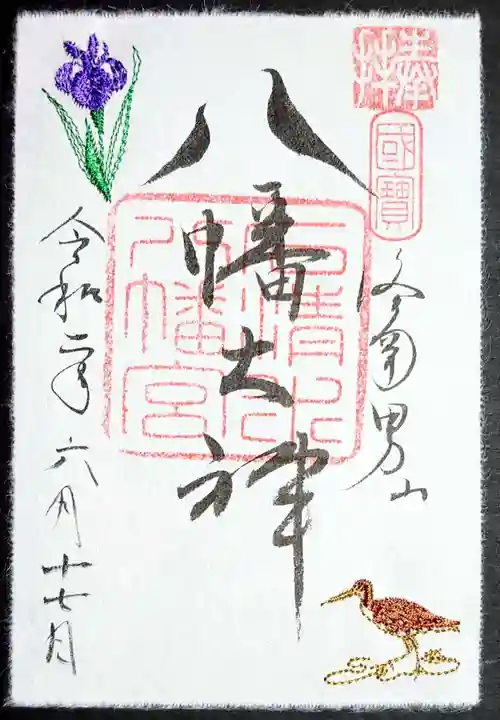 奉拝
國寶
男山
八幡大神
石清水
八幡宮
令和二年六月十七日